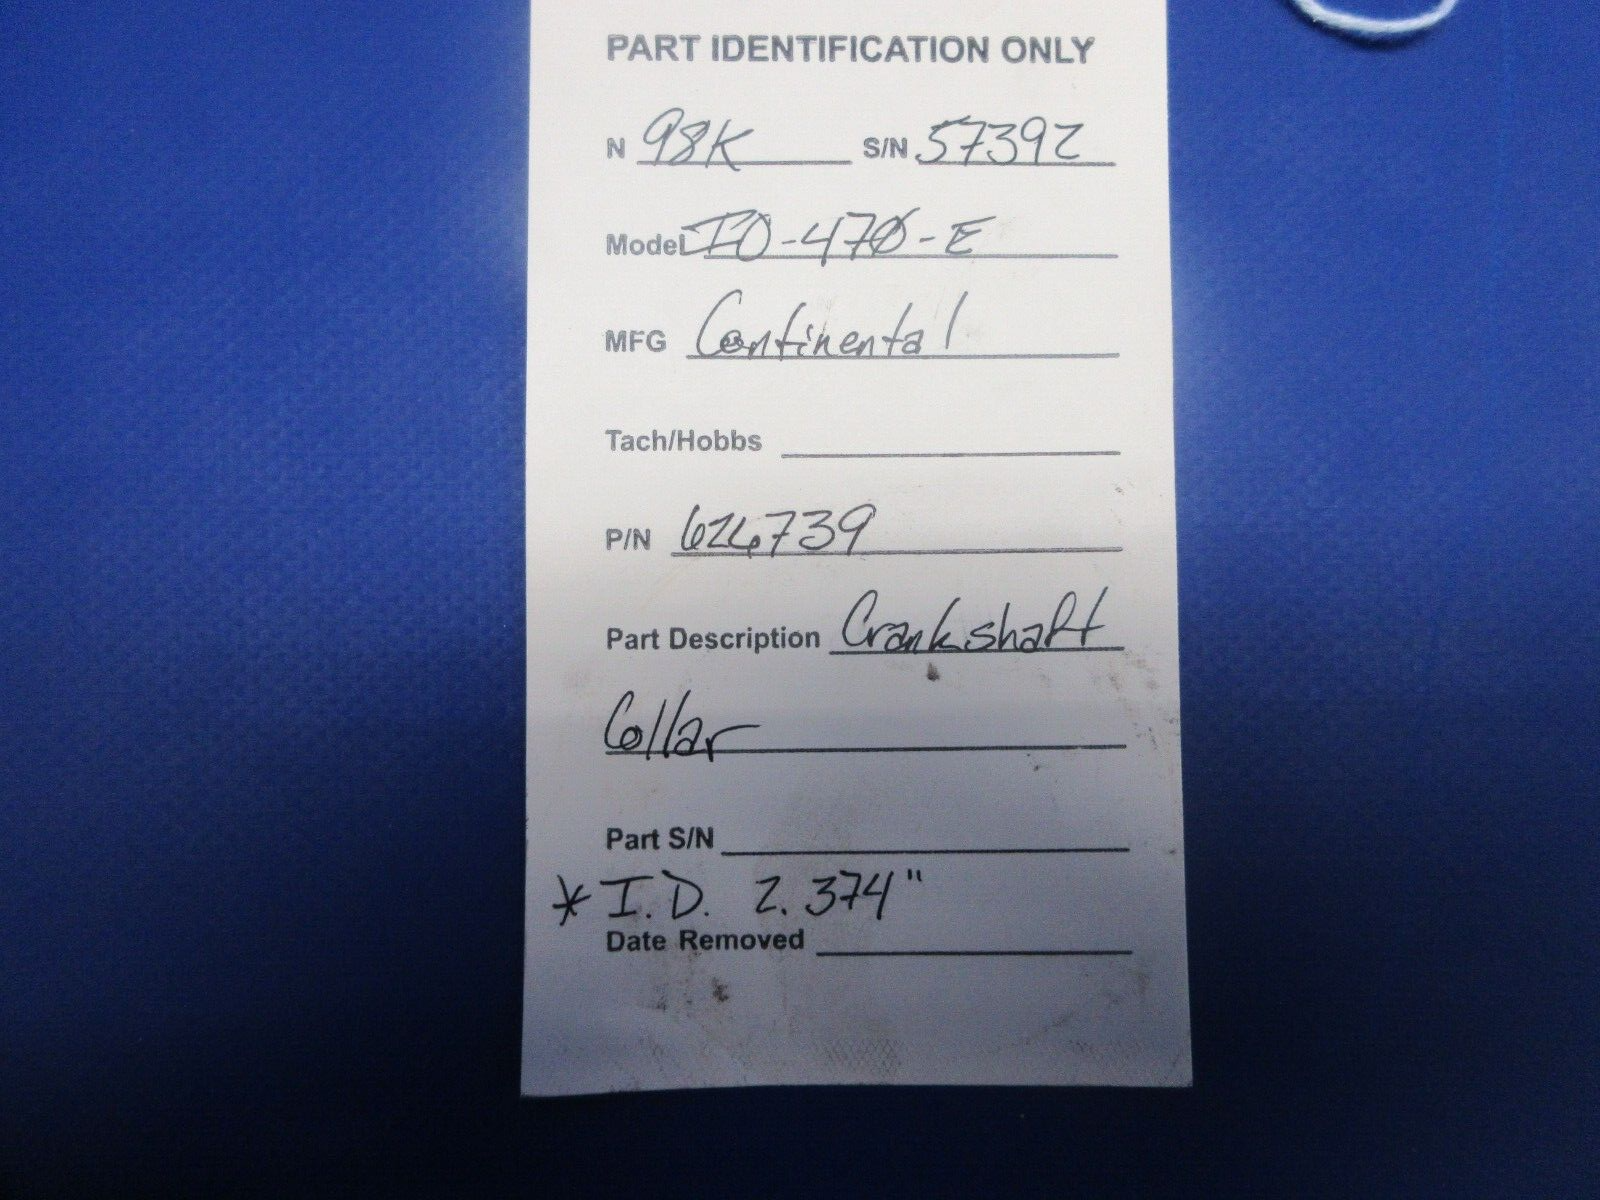 PART IDENTIFICATION ONLY
N 98K S/N 57392
Model IO-470-E
MFG Continental
Tach/Hobbs
P/N 626739
Part Description Crankshaft
Collar
Part S/N
* I.D. 2.374"
Date Removed